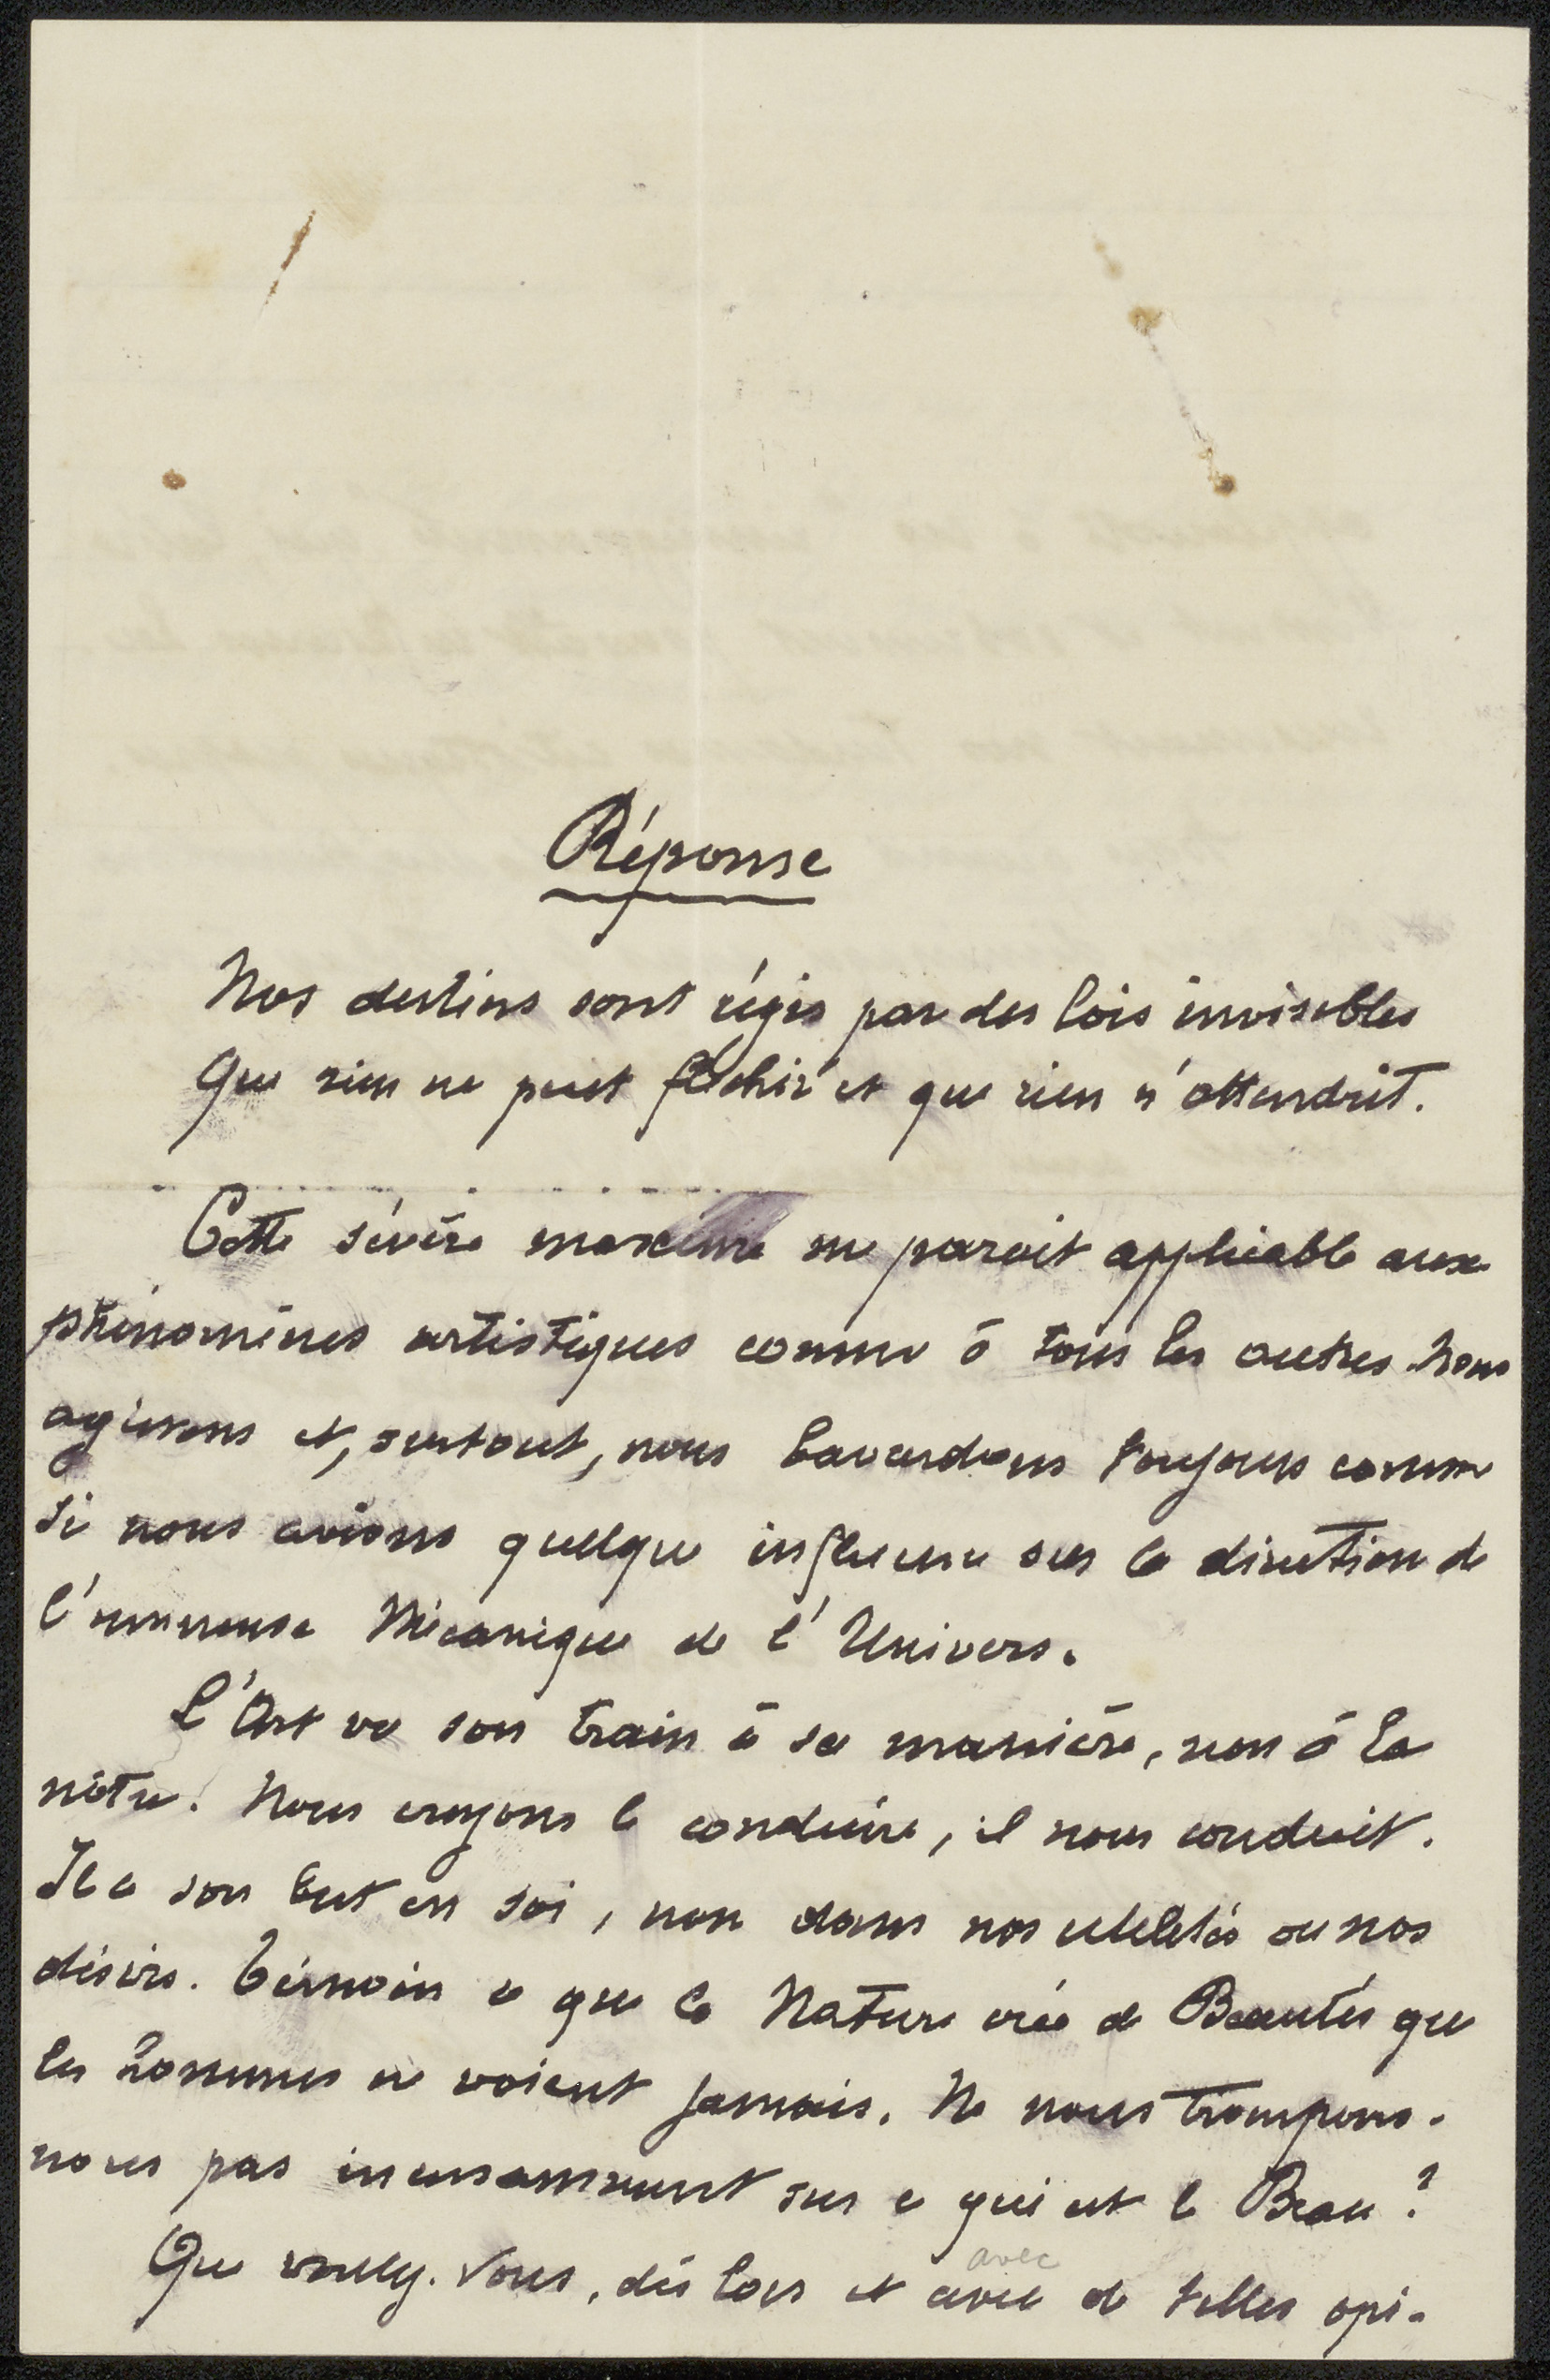 Réponse
Nos destins sont régis par des lois invisibles
Que rien ne peut fléchir et que rien n'attendrit.
Cette sévère maxime me parait applicable aux
phénomènes artistiques comme à tous les autres. Nous
agissons et, surtout, nous bavardons toujours comme
si nous avions quelque influence sur la direction de
l'immense Mécanique de l'Univers.
L'Art va son train à sa manière, non à la
nôtre. Nous croyons le conduire, il nous conduit.
Il a son but en soi, non dans nos utilités ou nos
désirs. Témoin ce que la Nature crée de Beautés que
les hommes ne voient jamais. Ne nous trompons-
nous pas incessamment sur ce qui est le Beau ?
avec
Que voulez-vous, dès lors et avec de telles opi-